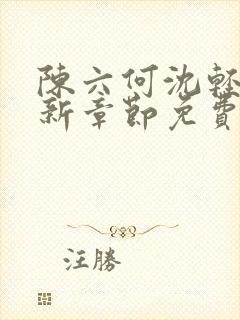 陳六何沈輕
新章節免費
汪勝